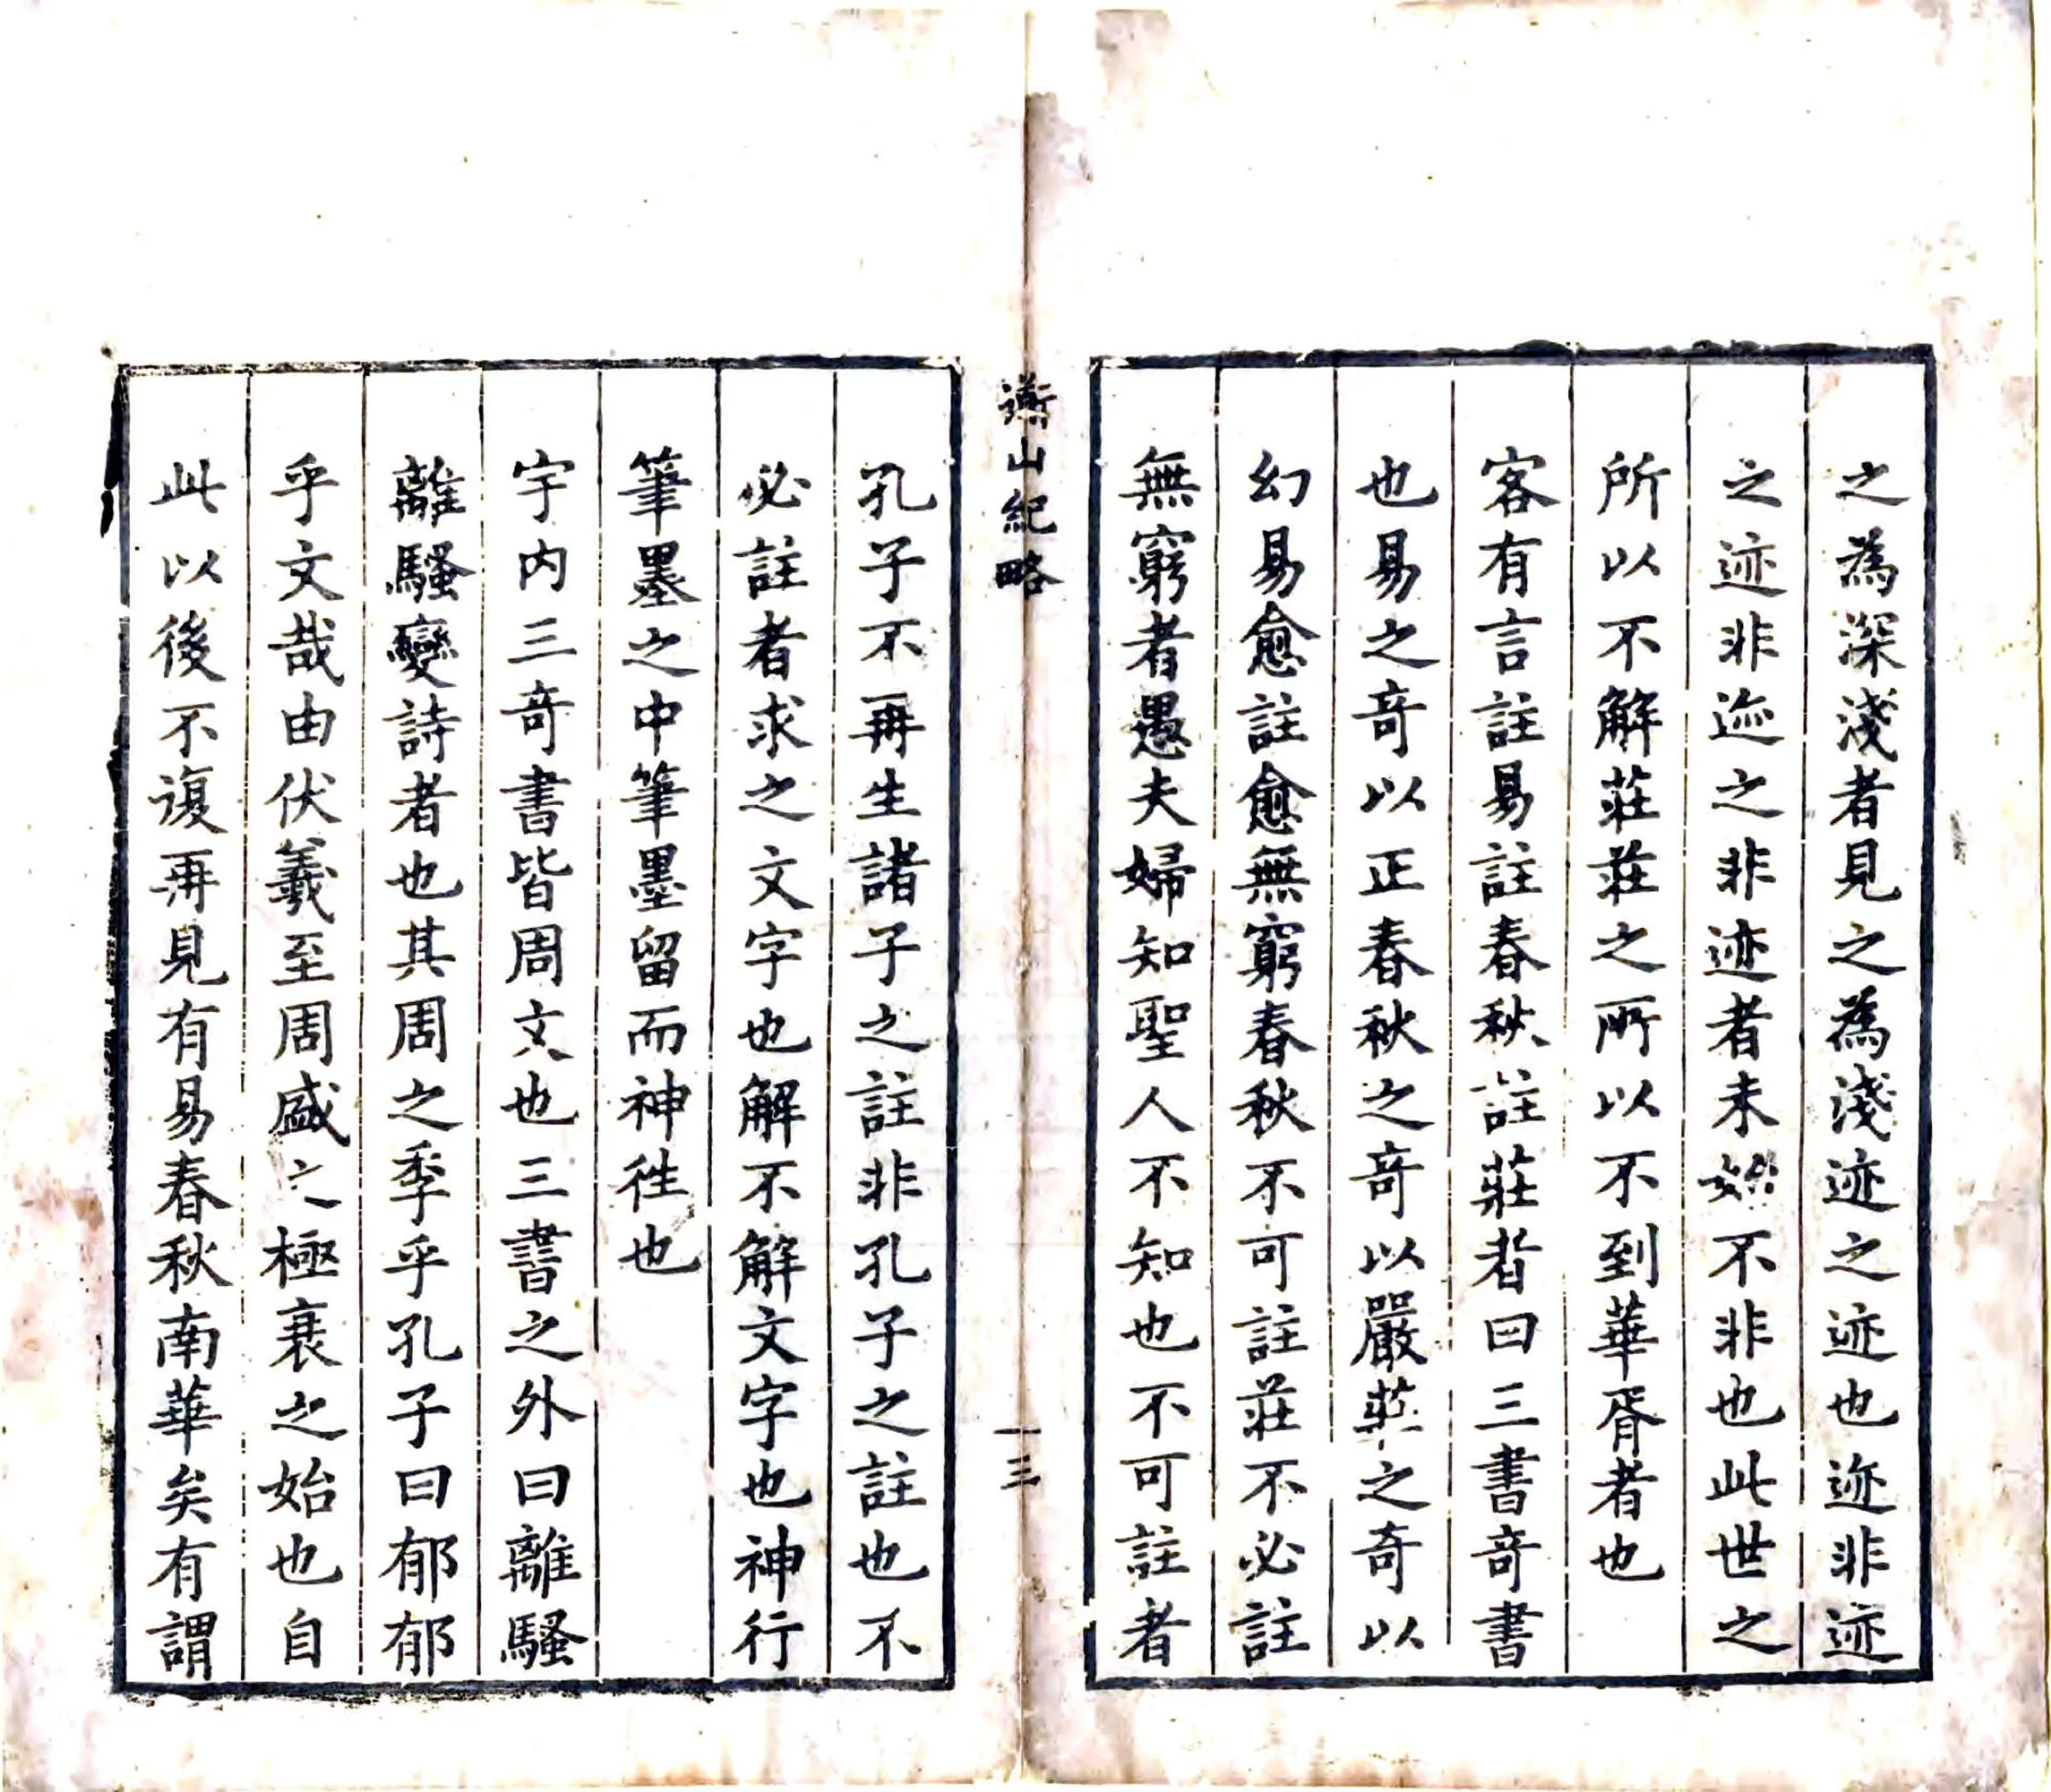 之為深淺者見之為淺迹之迹也迹非迹
之迹非迹之非迹者未始不非也此世之
所以不解莊莊之所以不到華胥者也
客有言註易註春秋註莊者曰三書奇書
也易之奇以正春秋之奇以嚴莊之奇以
幻易愈註愈無窮春秋不可註莊不必註
無窮者愚夫婦知聖人不知也不可註者
山紀略
一三
孔子不再生諸子之註非孔子之註也不
必註者求之文字也解不解文字也神行
筆墨之中筆墨留而神徃也
宇内三奇書皆周文也三書之外曰離騷
離騷變詩者也其周之季乎孔子曰郁郁
乎文哉由伏羲至周盛之極衰之始也自
此以後不復再見有易春秋南華矣有謂